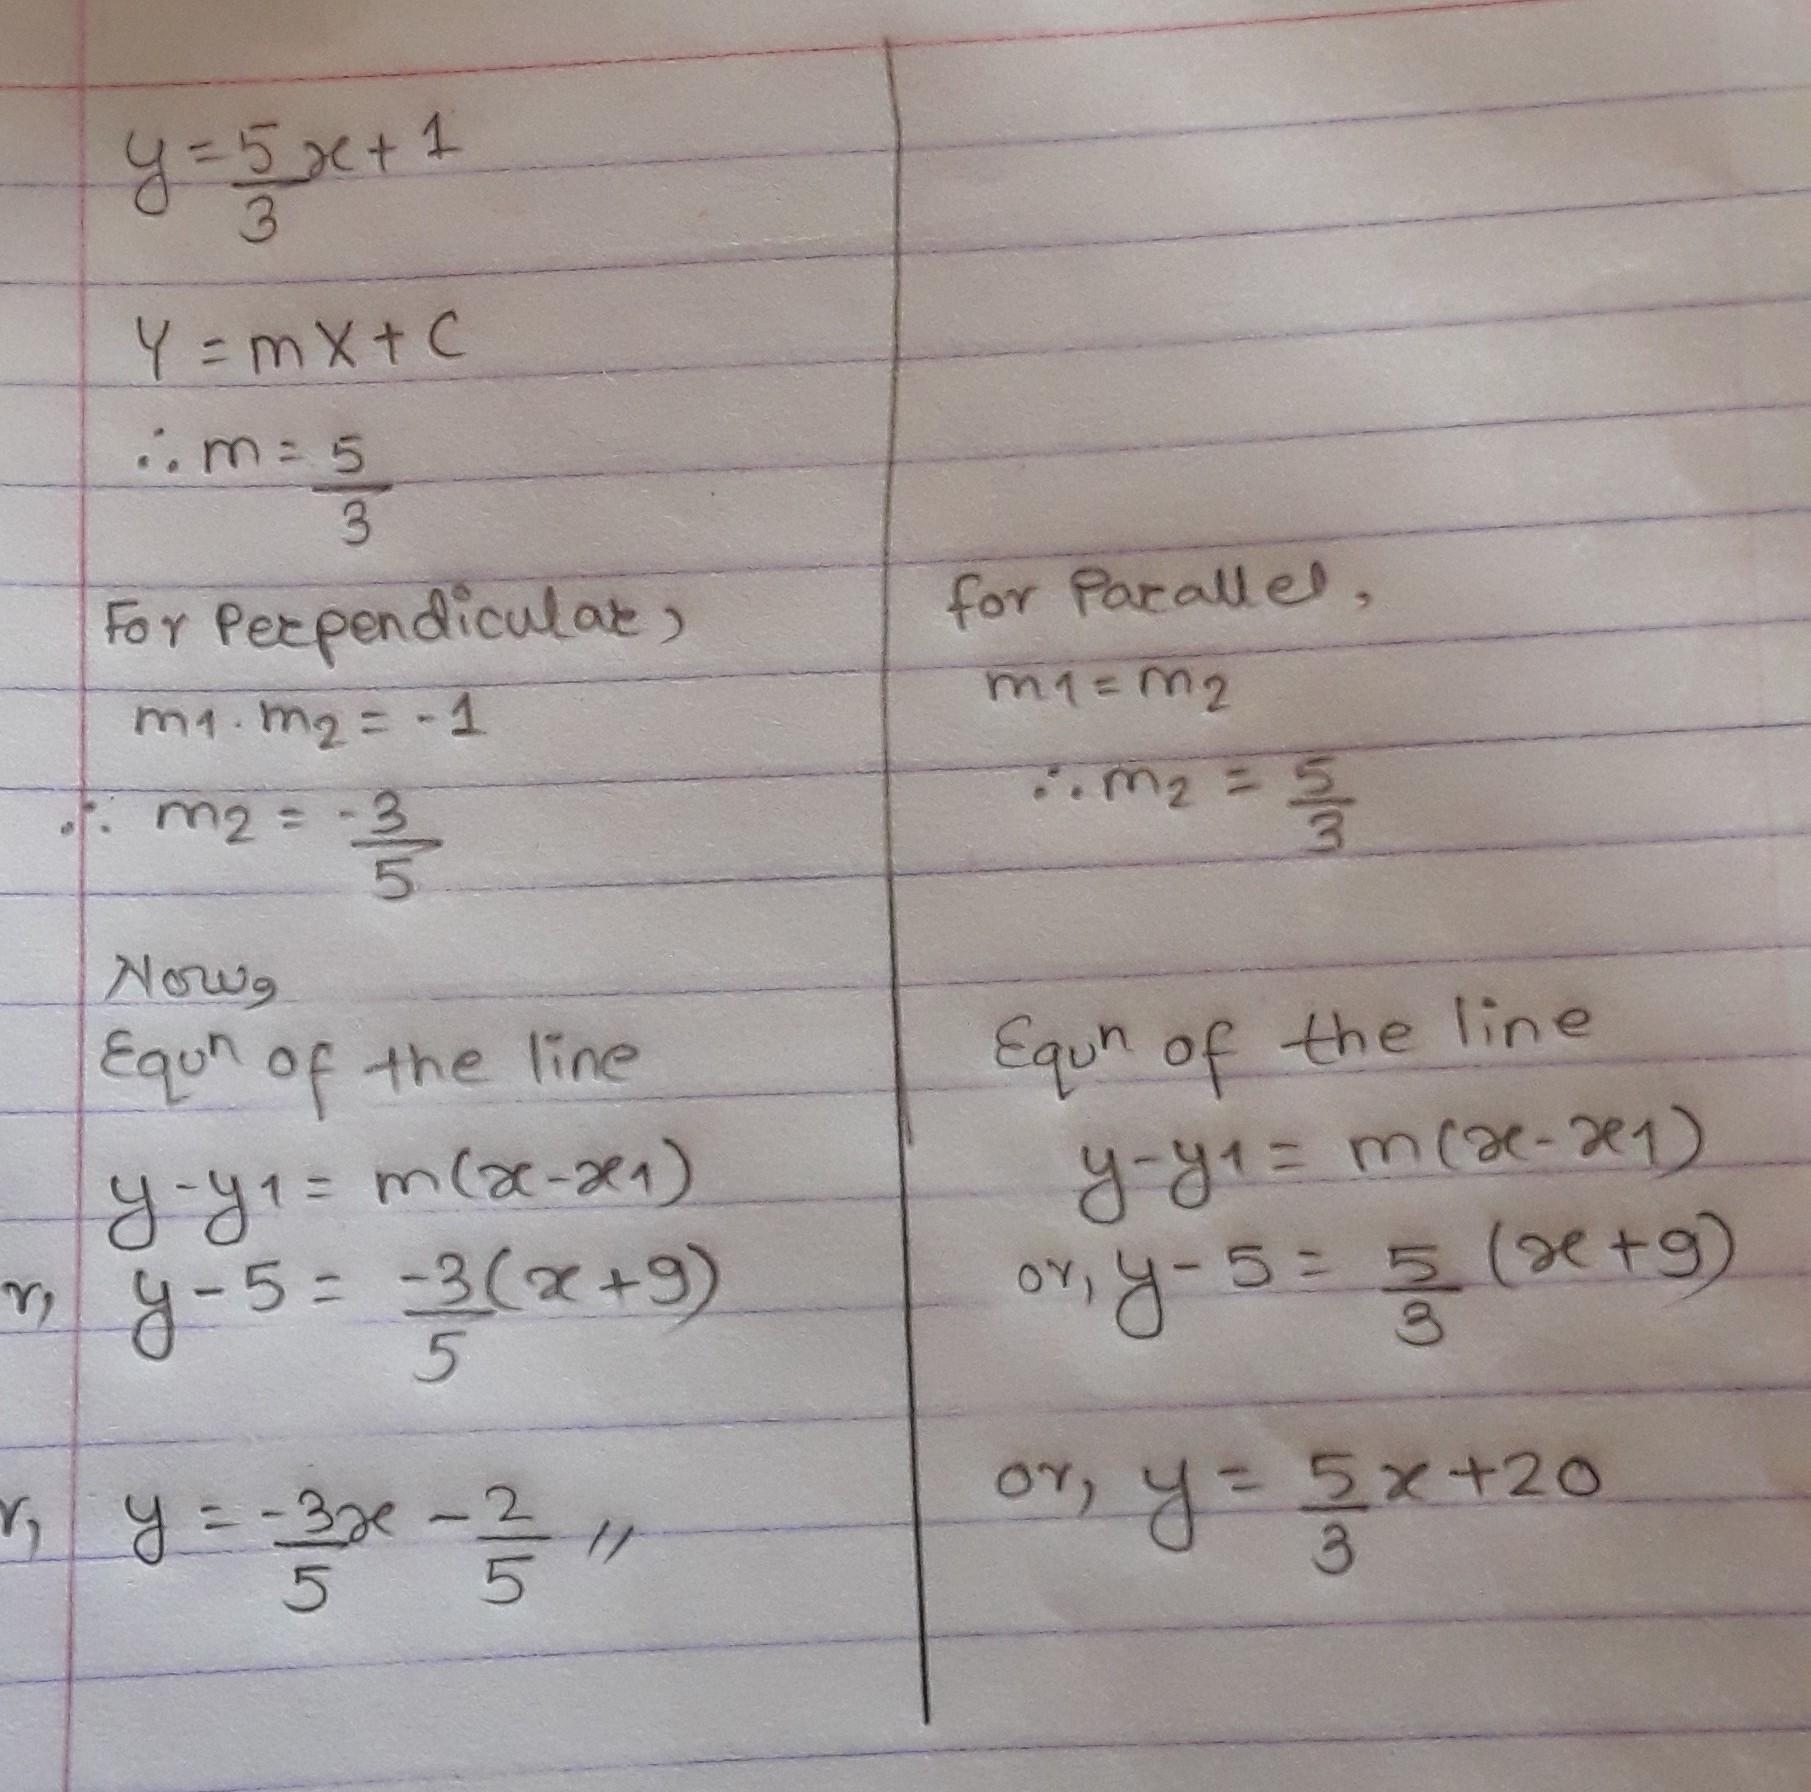 y = 5/3 x + 1
Y = mX + C
∴ m = 5/3
For Perpendicular,
m1 . m2 = -1
∴ m2 = -3/5
Now,
Equn of the line
y - y1 = m(x - x1)
r, y - 5 = -3/5 (x + 9)
r, y = -3/5 x - 2/5 //
for Parallel,
m1 = m2
∴ m2 = 5/3
Equn of the line
y - y1 = m(x - x1)
or, y - 5 = 5/3 (x + 9)
or, y = 5/3 x + 20